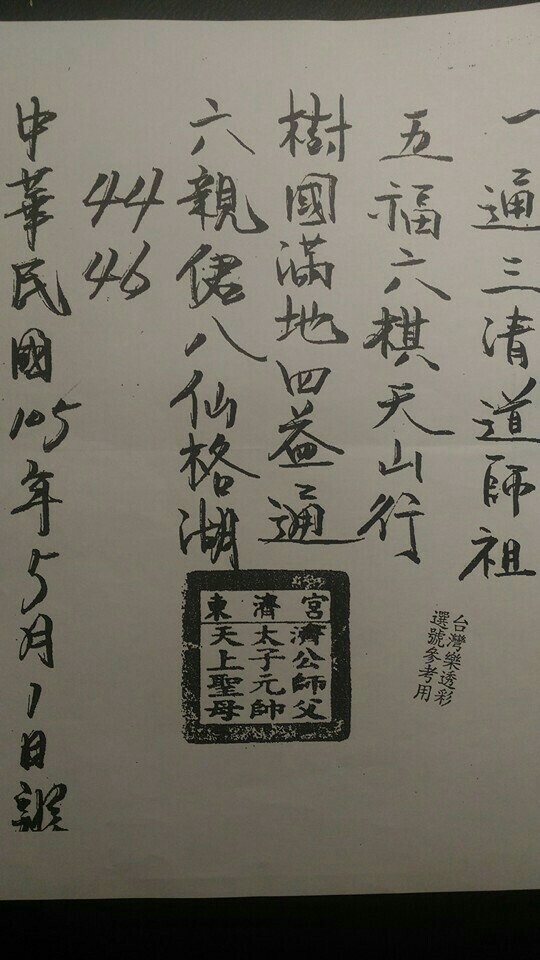 一通三清道師祖
五福六棋天山行
樹國滿地四益通
六親偌八仙格湖
44
46
中華民國105年5月1日
東濟宮
濟公師父
太子元帥
天上聖母
台灣樂透彩
選號參考用